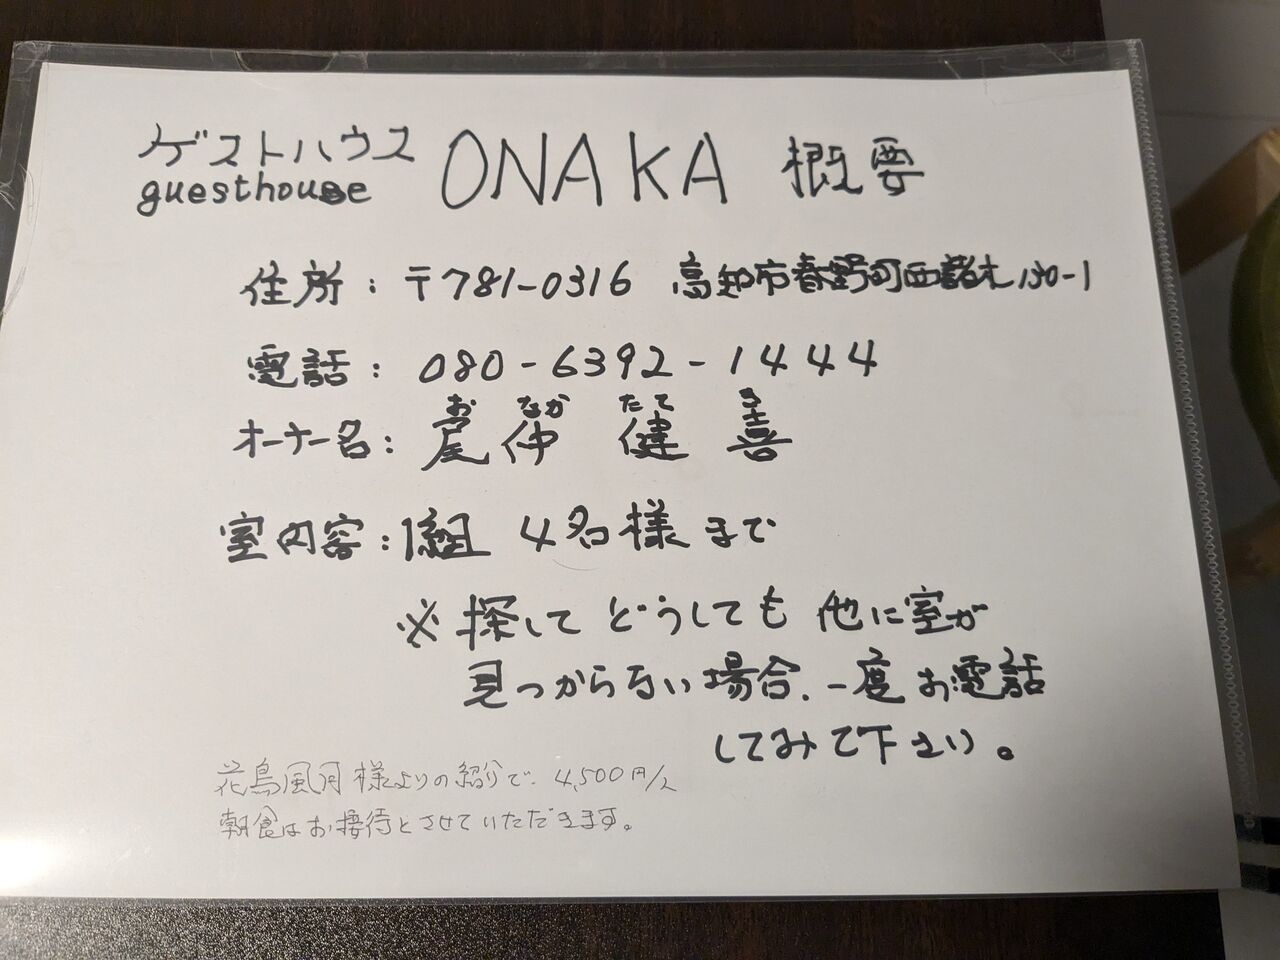 ゲストハウス ONAKA 概要
guesthouse
住所：〒781-0316 高知市春野町西諸木130-1
電話：080-6392-1444
おなか たてき
オーナー名：尾仲 健喜
室内容：1組 4名様まで
※探してどうしても他に室が
見つからない場合、一度お電話
してみて下さい。
花鳥風月様よりの紹介で、4,500円/人
朝食はお接待とさせていただきます。